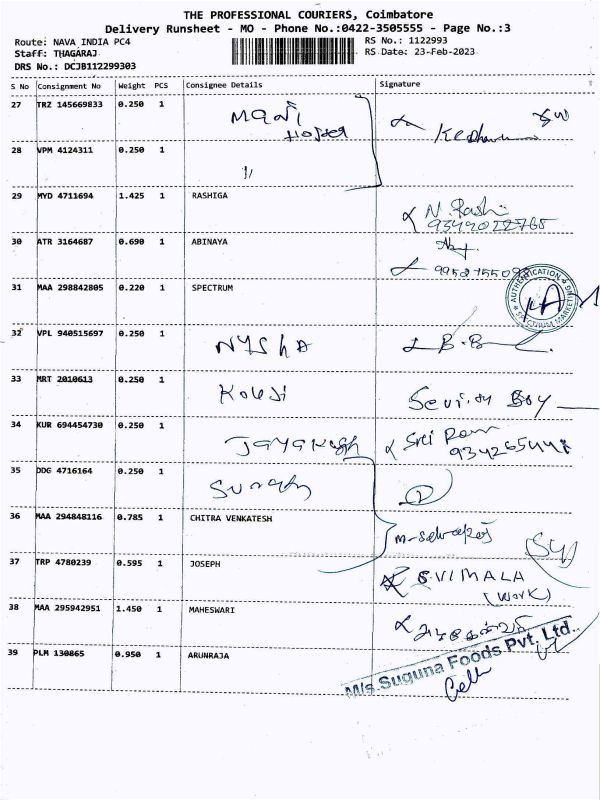 THE PROFESSIONAL COURIERS, Coimbatore
Delivery Runsheet - MO - Phone No.:0422-3505555 - Page No.:3
Route: NAVA INDIA PC4
RS No.: 1122993
Staff: THAGARAJ
RS Date: 23-Feb-2023
DRS No.: DCJB112299303
S No Consignment No Weight PCS Consignee Details Signature
27 TRZ 145669833 0.250 1
28 VPM 4124311 0.250 1 11
29 MYD 4711694 1.425 1 RASHIGA N. Rashi
30 ATR 3164687 0.690 1 ABINAYA
31 MAA 298842805 0.220 1 SPECTRUM
AUTHENTICATION
32 VPL 940515697 0.250 1
33 MRT 2010613 0.250 1
34 KUR 694454730 0.250 1 Sri Ram
35 DDG 4716164 0.250 1
36 MAA 294848116 0.785 1 CHITRA VENKATESH
37 TRP 4780239 0.595 1 JOSEPH S.VIMALA
(WORK)
38 MAA 295942951 1.450 1 MAHESWARI
39 PLM 130865 0.950 1 ARUNRAJA
M/s.Suguna Foods Pvt. Ltd.